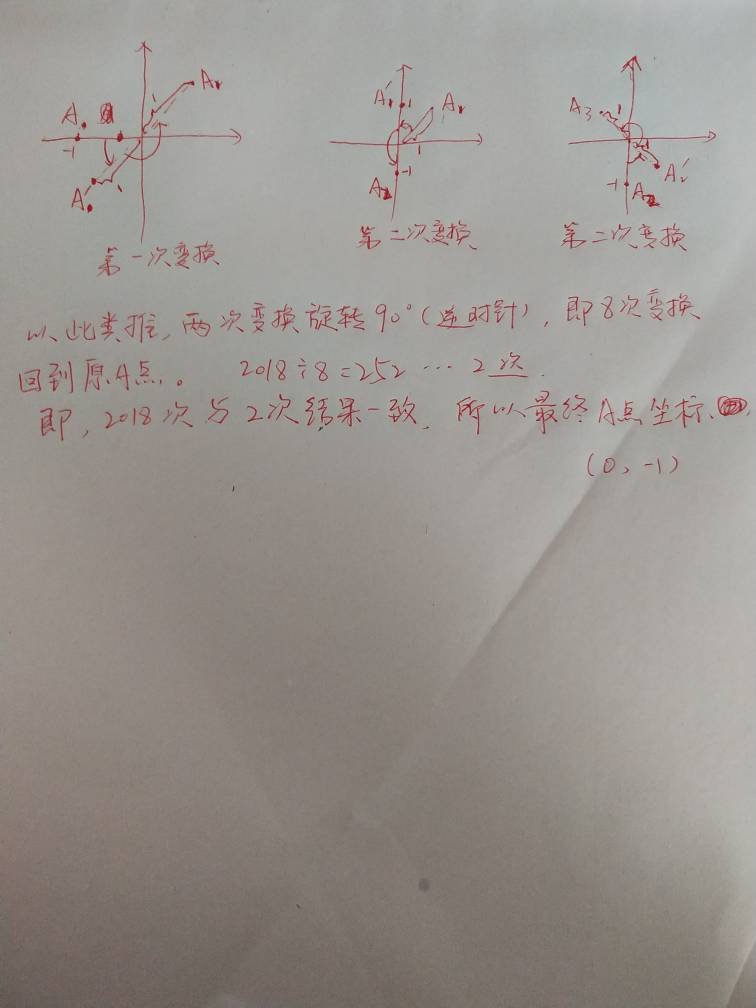 A₀ -1 A₀' 1 1 A₁
A₁' 1 A₁ 1 -1 A₂
A₃ 1 1 A₂' -1 A₂
第一次变换 第二次变换 第二次变换
以此类推,两次变换旋转90°(逆时针),即8次变换
回到原A点。 2018÷8=252 … 2次.
即,2018次与2次结果一致,所以最终A点坐标、
(0,-1)